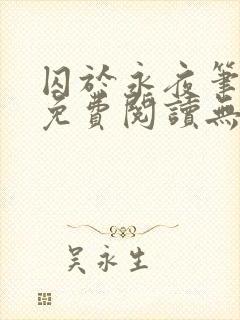 囚於永夜筆
免費閱讀無
吳永生